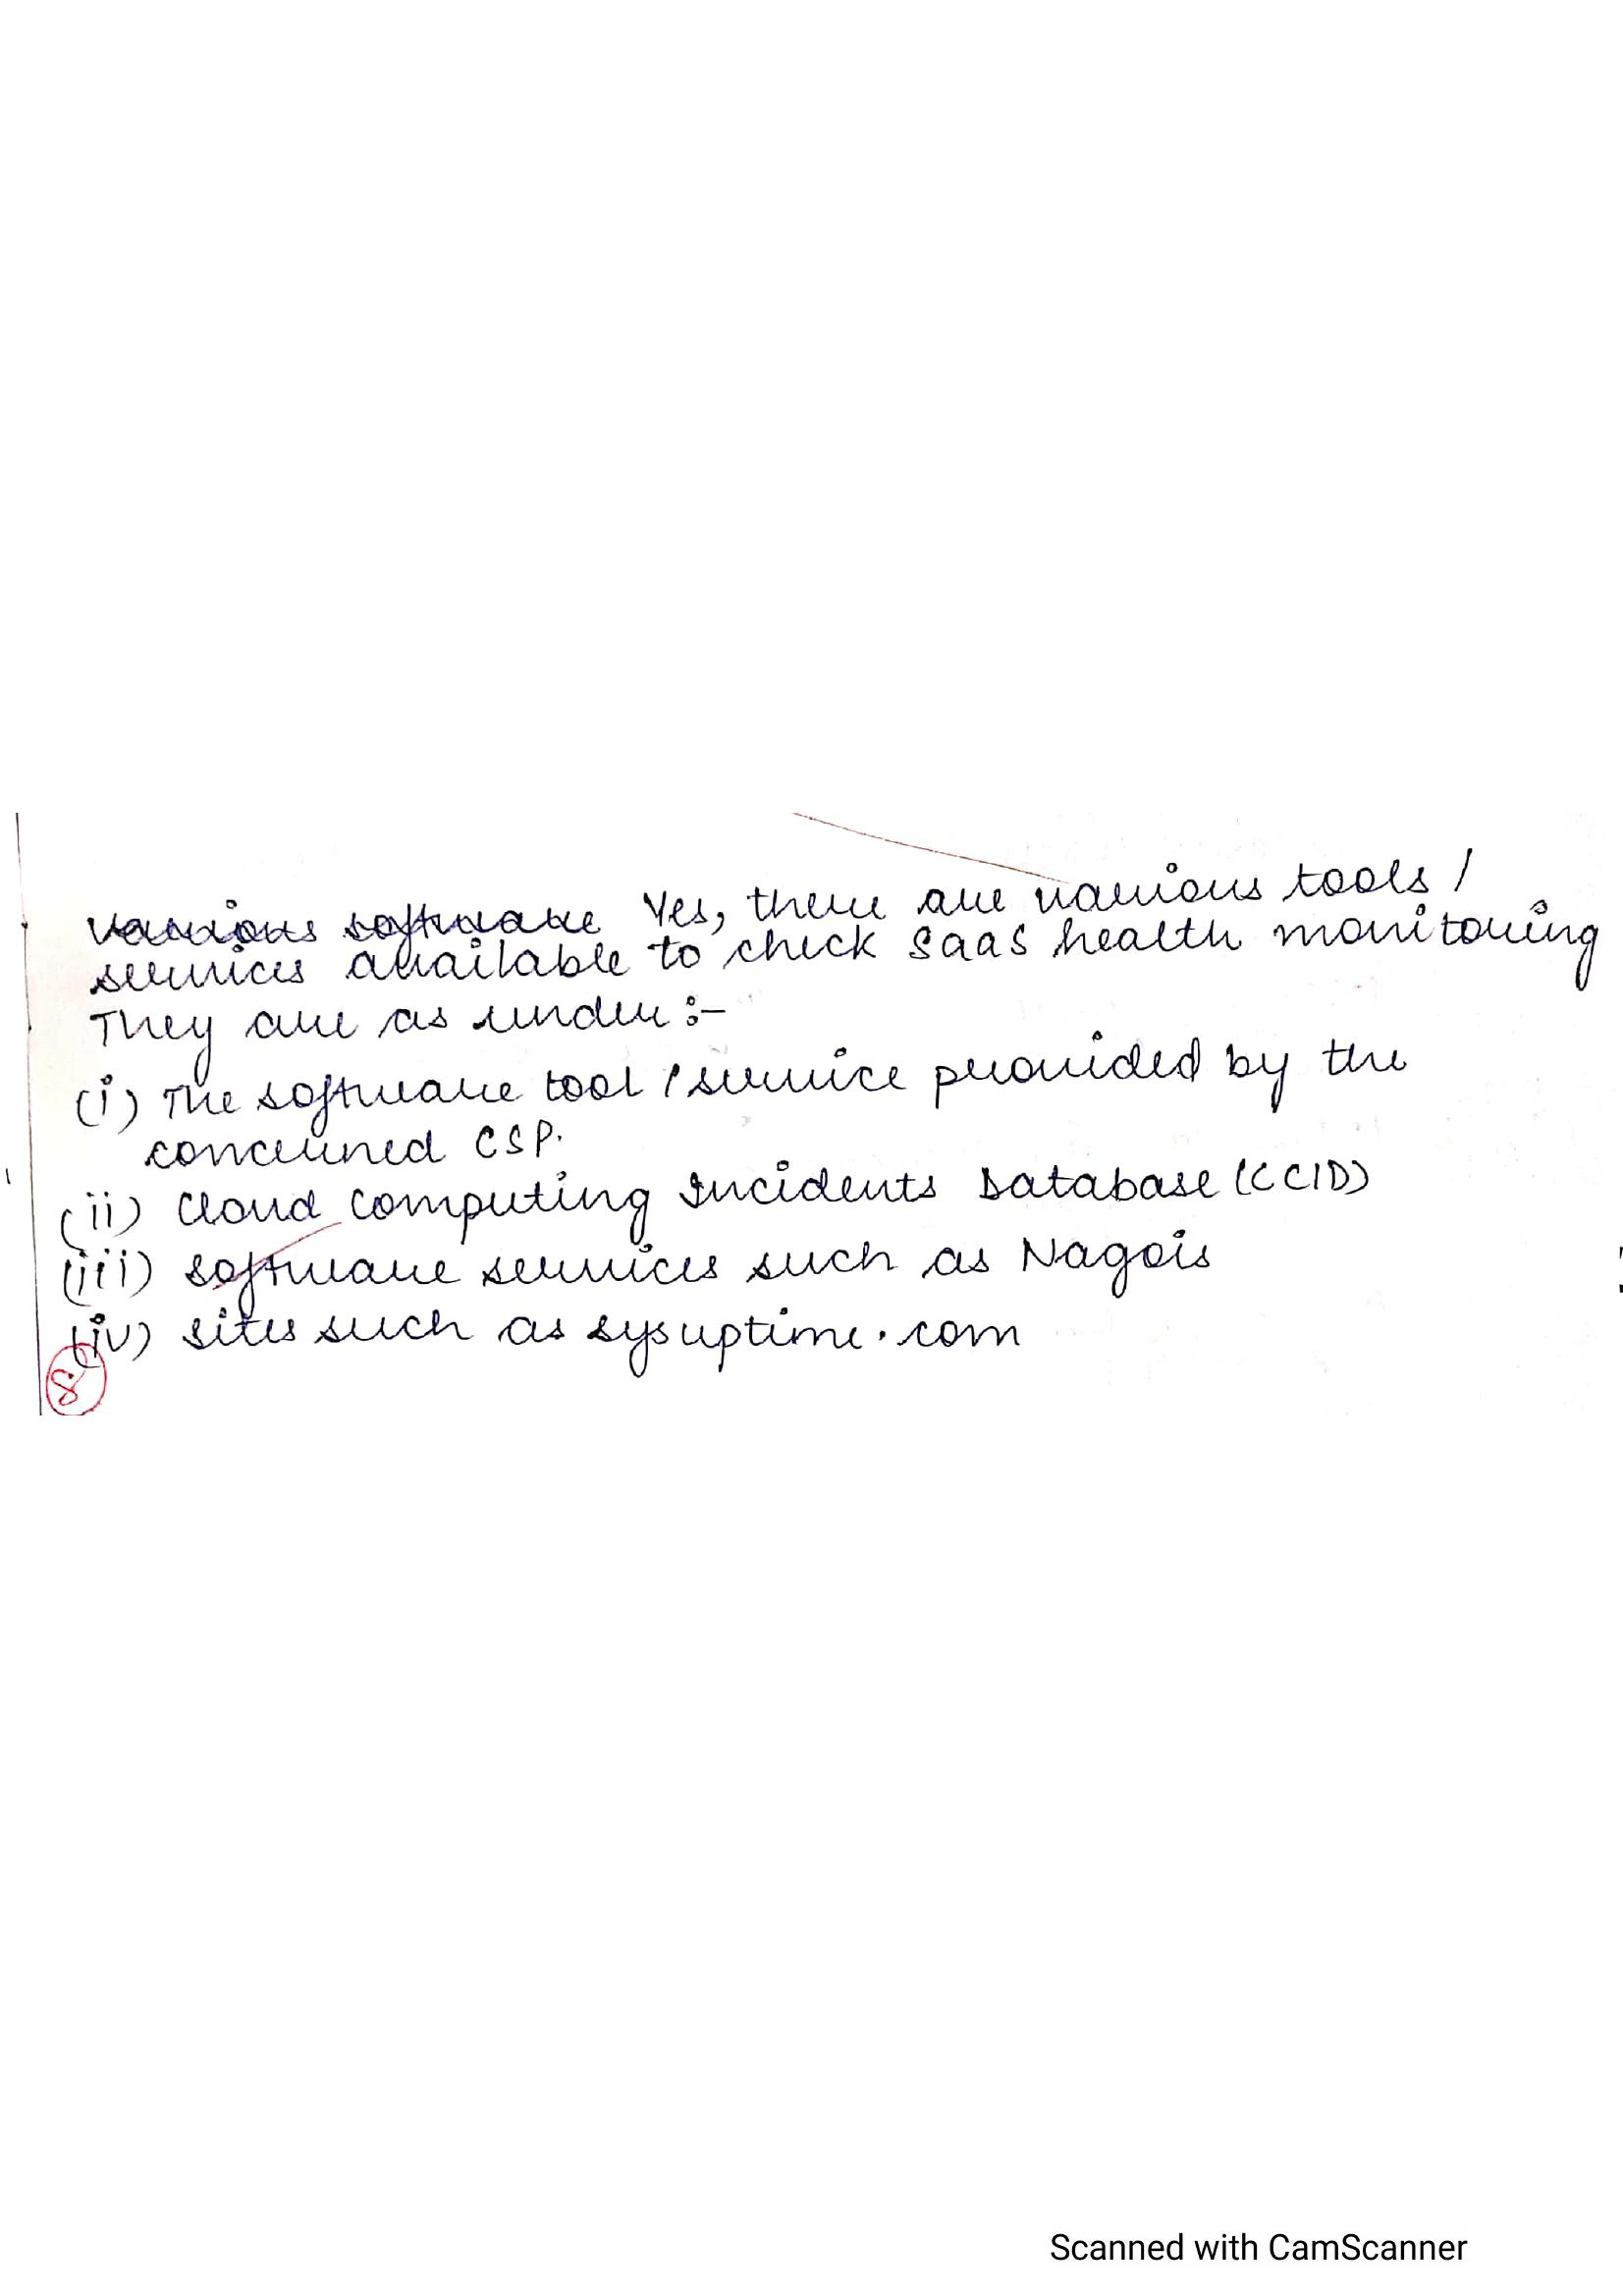 various software Yes, there are various tools /
services available to check SaaS health monitoring
They are as under :-
(i) The software tool / service provided by the
concerned CSP.
(ii) Cloud Computing Incidents Database (CCID)
(iii) software services such as Nagois
(iv) sites such as sysuptime.com
Scanned with CamScanner